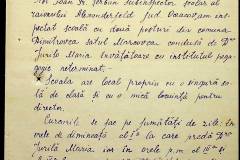 Ion Gr. Șerban Subinspector școlar al
raionului Alexanderfeld Jud. am ins-
pectat școala cu două posturi din comuna
Dimitrovca satul Marcovca condusă de Dna
Jurilă Maria învățătoare cu institutul peda-
gogic neterminat.
Școala are local propriu cu o singură sa-
lă de clasă și cu o mică locuință pentru
director.
Cursurile se fac pe jumătăți de zile. În
orele de dimineață cl. I la care predă Dna
Jurilă Maria iar în orele p.m. cl.